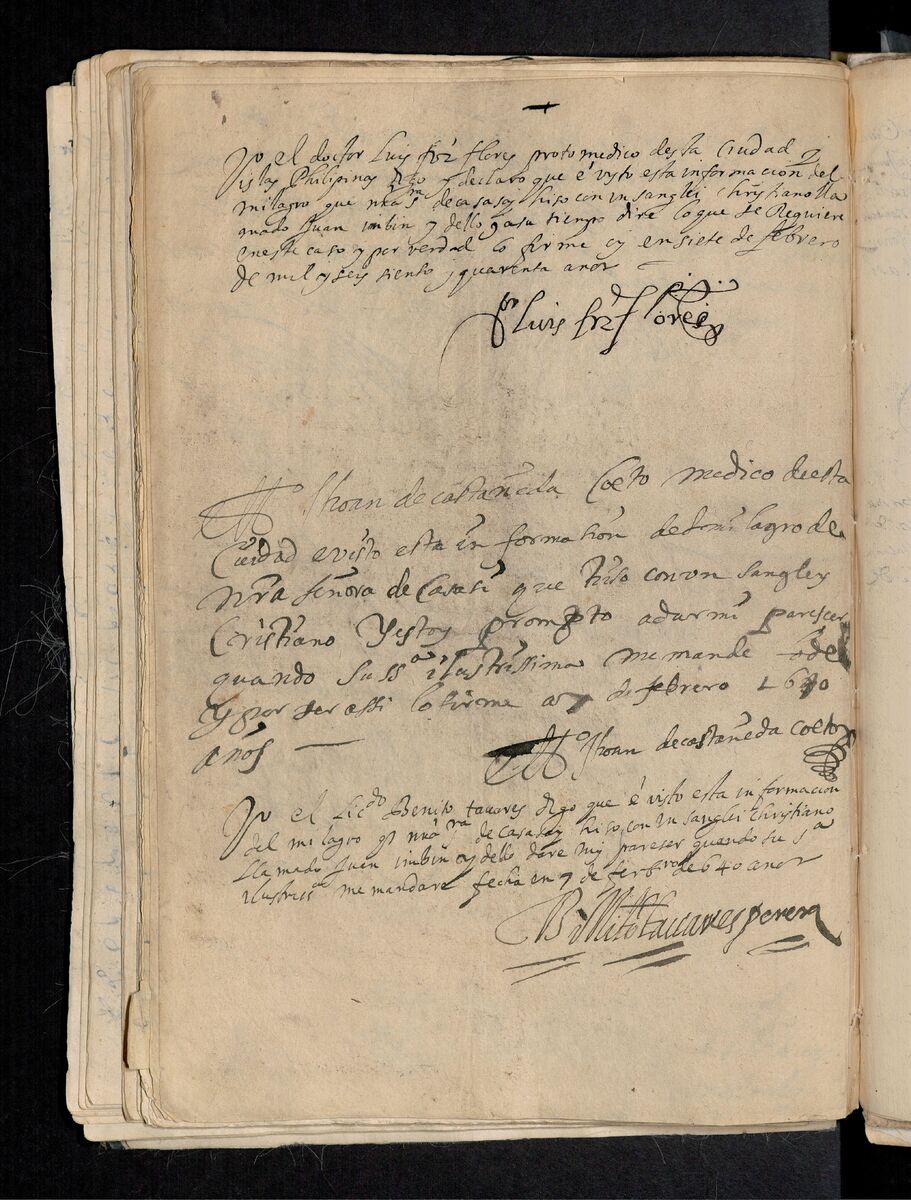 Yo el doctor Luis frz flores protomedico desta Ciudad y
islas Philipinas digo y declaro que é visto esta informacion del
milagro que nrã Srã de casasay hiso con in sanglei Christiano lla
mado Juan imbin y dello y a su tiempo dire lo que se Requiere
eneste caso y por verdad lo firme oy en siete de febrero
de mil y seis siento y quarenta anos
Dor Luis frz flores
Mo Jhoan de castañeda Coeto medico de esta
Ciudad e visto esta in formation del milagro de
nrã señora de Casasi que hiso con un sangley
Cristiano Y estoy prompto a dar mi parescer
quando su ssa ilustrissima me mande
Y por ser assi lo firme a 7 de febrero 1640
años
Mo Jhoan de castañeda coeto
Yo el Licdo Benito tavares digo que é visto esta informacion
del milagro q nrã Srã de casasay hiso con in sanglei Christiano
Llamado Juan imbin y dello dare my pareser quando su sa
ilustriss me mandare fecha en 7 de febro de 640 anos
Benito tavares perera